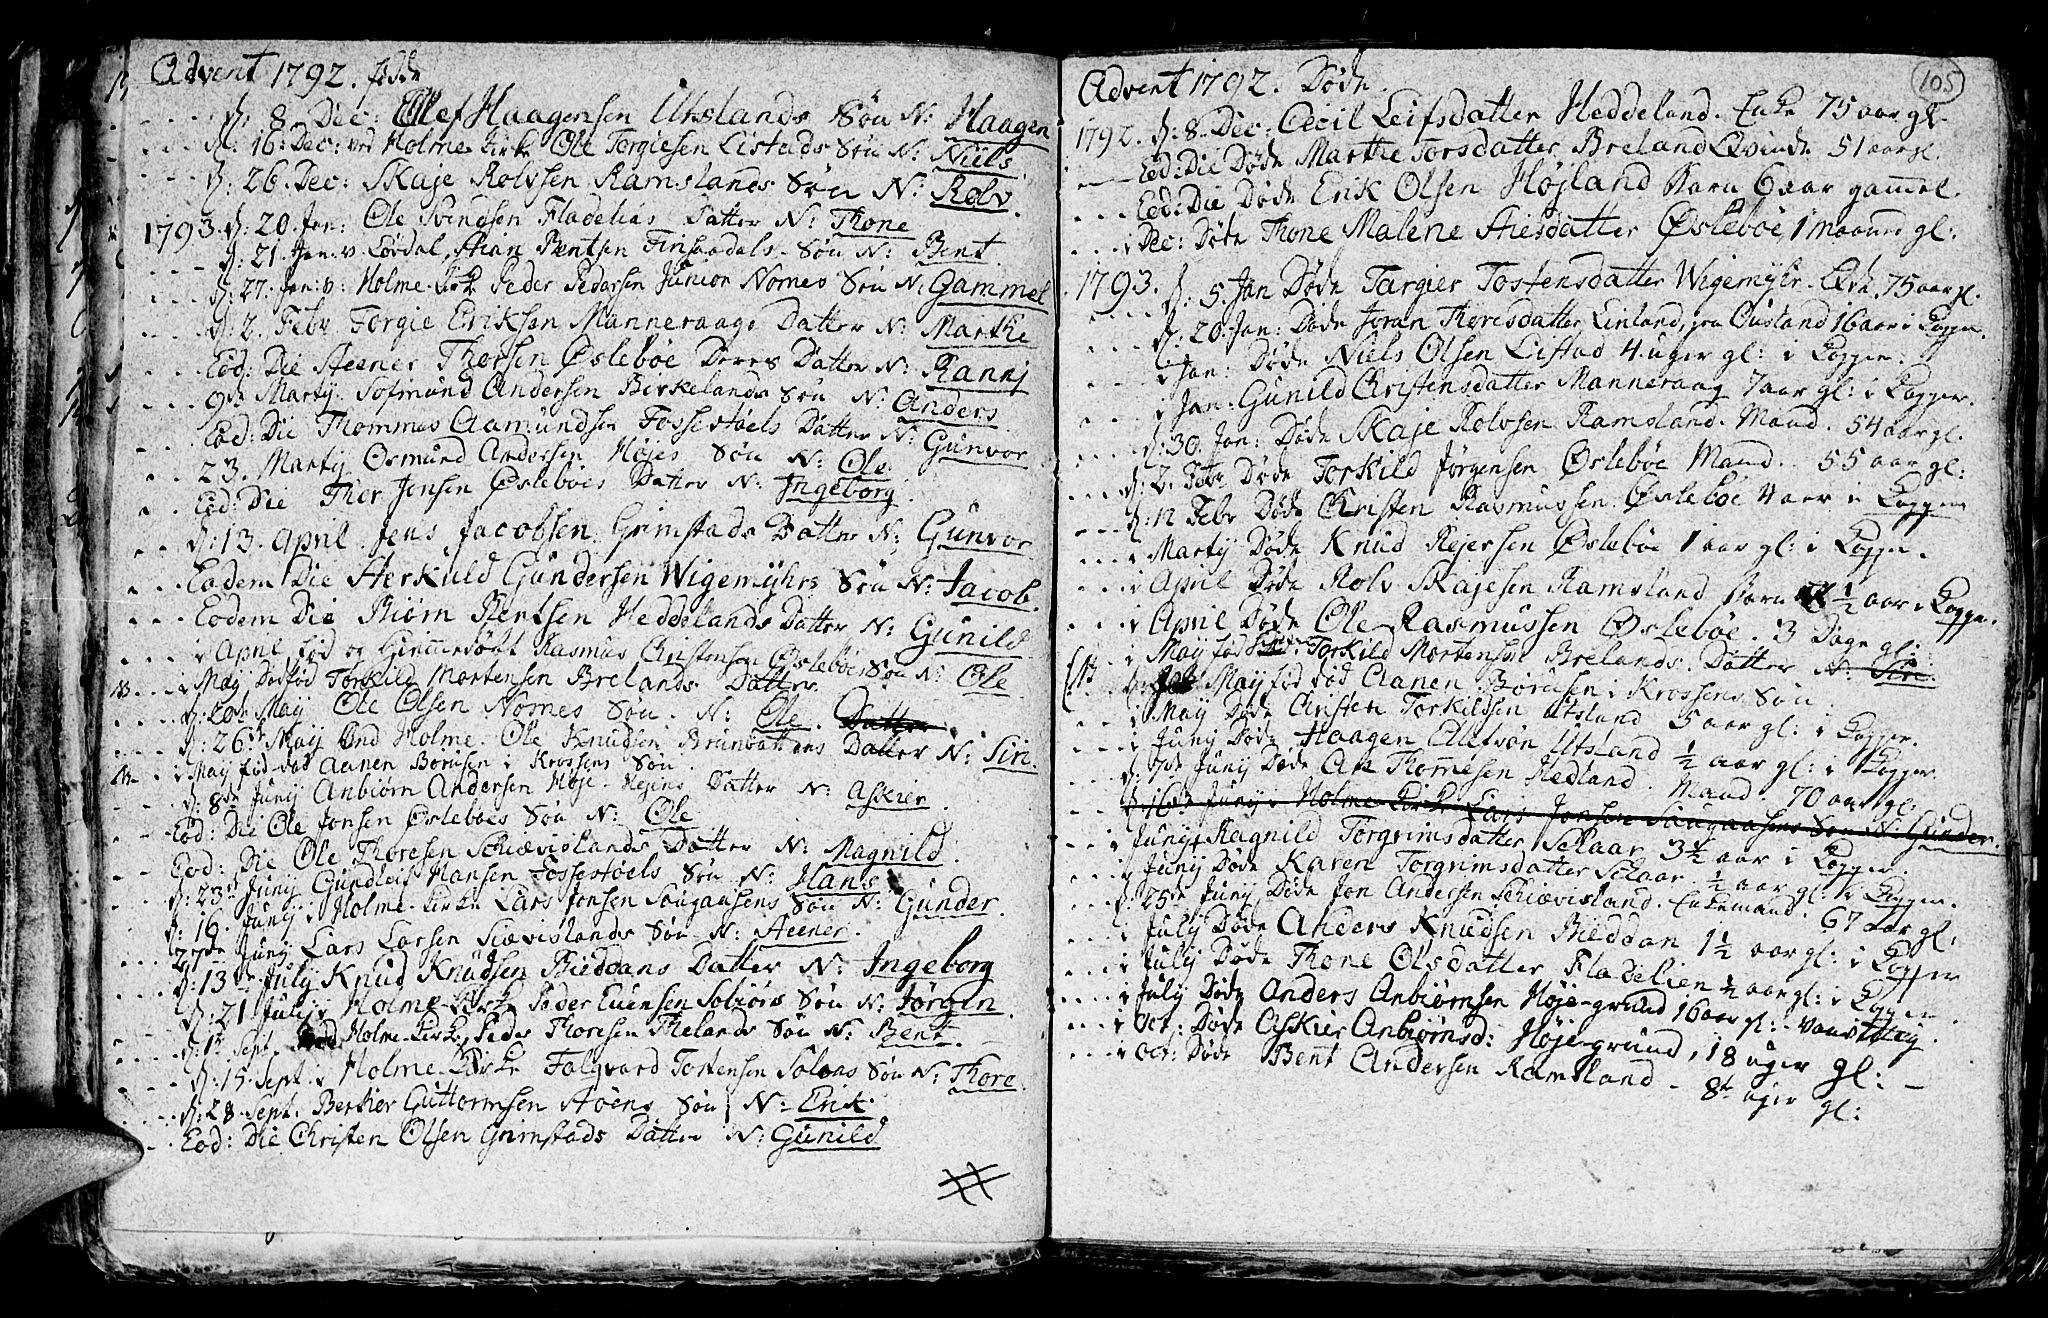 Advent 1792. fødde
d. 8. Dec: Olef Haagensen Utslands Søn N: Haagen
d: 16: Dec: ved Holme Kirke Ole Torgiesen Listads Søn N: Niels
d: 26. Dec: Skaje Rolvsen Ramslands Søn N: Rolv
1793. d: 20. Jan: Ole Svendsen Fladeliäs Datter N: Thone
d: 21. Jan: v. Løvdal, Bentsen Finsaadals Søn N: Bent
d: 27. Jan: v: Holme Kirke Peder Pedersen Junior Nomes Søn N: Gammel
d: 2. Febr. Torgie Eriksen Manneraags Datter N: Marthe
Eod: Die Steener Thorsen Øsleböe Deres Datter N: Ranni
9de Martij. Sofmund Andersen Birkelands Søn N: Anders
Eod: Die Thommes Aamundsen Fossestøels Datter N: Gunvor
23. Martij Osmund Andersen Højes Søn N: Ole
Eod: Die Thor Jensen Øsleböes Datter N: Ingeborg
d: 13. April. Jens Jacobsen Grimstads Datter N: Gunvor
Eodem Die Sterkuld Gundersen Wigemyhrs Søn N: Jacob
Eodem Die Biørn Bentsen Heddelands Datter N: Gunild
i April fød og hiemmedøbt Rasmus Christensen Øsleböes Søn N: Ole
i May Dødfød Torkild Mortensen Brelands Datter
d: 20de May Ole Olsen Nomes Søn. N: Ole. Datter
d: 26de May ved Holme. Ole Knudsen Brunvattens Datter N: Siri.
i May fød død Aanen Børusen i Krossens Søn.
d: 8de Junij Anbiørn Andersen Høje Hejens Datter N: Askier
Eod: Die Ole Jonsen Øsleboes Søn N: Ole
Eod: Die Ole Thoresen Schiævislands Datter N: Magnild
d: 23de Junij Gundleif Hansen Fossestøels Søn N: Hans
d: 16. Junij i Holme Kirke Lars Jonsen Saugaasens Søn N: Gunder
Junij Lars Larsen Siævislands Søn N: Steener
d: 13de Julij Knud Knudsen Bieddans Datter N: Ingeborg
d: 21 Julij i Holme Kirke Peder Evensen Solaas Søn N: Jörgen
d: 1te Sept. ved Holme Kirke, Peder Thoresen Thelands Søn N: Bent
d: 15. Sept. i Holme Kirke Falqvard Tostensen Solaas Søn N: Thore
d: 28. Sept. Berkier Guttormsen Støens Søn N: Erik
Eod: Die Christen Olsen Grimstads Datter N: Gunild
105
Advent 1792. Døde
1792. d: 8. Dec: Cecil Leifsdatter Heddeland. Enke 75 aar gl.
Eod: Die Døde Marthe Torsdatter Breland Qvinde 51 aar gl.
Eod: Die Døde Erik Olsen Højland Barn 6 aar gammel.
i Dec: Døde Thone Malene Øsleböe, 1 maaned gl:
1793. d. 5. Jan Døde Targier Tostensdatter Wigemyhr. 75 aar gl.
d: 20. Jan: Døde Joran Thoresdatter Linland, fra Ousland 16 aar i Kopper.
i Jan: Døde Niels Olsen Listad 4. uger gl: i Kopper.
i Jan: Gunild Christensdatter Manneraag 7 aar gl: i Kopper.
d: 30. Jan: Døde Skaje Rolvsen Ramsland. Mand. 54 aar gl.
d: 2. Febr. Døde Torkild Jørgensen Øsleböe Mand. 55 aar gl:
d: 12 Febr Døde Christen Rasmussen. Øsleböe 4 aar i Kopper
i Martij Døde Knud Rejersen Øsleböe 1 aar gl: i Kopper.
i April Døde Rolv Skajesen Ramsland Barn ½ aar i Kopper.
i April Døde Ole Rasmussen Øsleböe. 3 Dage gl:
i May fød Torkild Mortensen Brelands Datter N: Siri
May fød død Aanen Børusen i Krossens Søn
i May Døde Christen Torkildsen Utsland 5 aar gl: i Kopper.
i Junij Døde Haagen Olefsøn Utsland ½ aar gl: i Kopper.
d: 7de Junij Døde Ommesen Hedland. Mand 70 aar gl:
d: 16de Junij i Holme Kirke Lars Jonsen Saugaasens Søn N: Gunder.
i Junij Ragnild Torgrimsdatter Selaar 3½ aar i Kopper.
i Junij Døde Karen Torgrimsdatter Selaar ½ aar gl. i Kopper.
d: 25de Junij Døde Jon Andersen Schiævisland. Enkemand. 67 aar gl.
i Julij Døde Anders Knudsen Bieddan 1½ aar gl: i Kopper
i Julij Døde Thone Olsdatter Fladelien ½ aar gl: i Kopper
i Julij Døde Anders Anbiørnsen Høje-grund 16 aar gl: vanvittig
i Oct: Døde Askier Anbiørnsd: Høje-grund, 18 uger gl:
i Oct: Døde Bent Andersen Ramsland 8te uger gl: